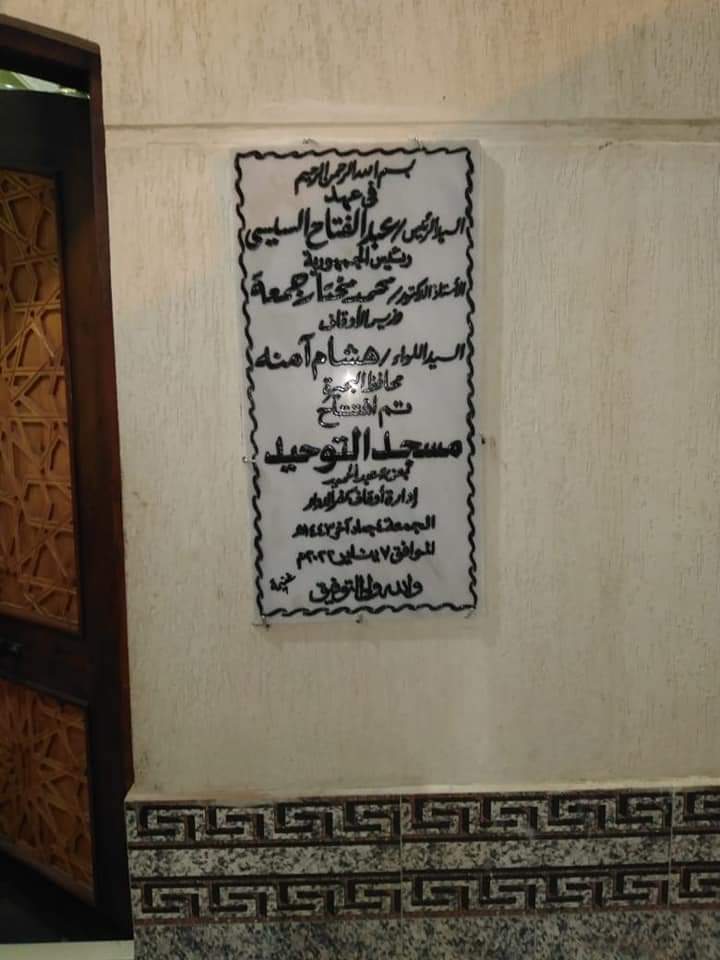 بسم الله الرحمن الرحيم
في عهد
السيد الرئيس / عبد الفتاح السيسي
رئيس الجمهورية
الأستاذ الدكتور / محمد مختار جمعة
وزير الأوقاف
السيد اللواء / هشام آمنه
محافظ البحيرة
تم افتتاح
مسجد التوحيد
بعزبة عبد الحميد
إدارة أوقاف كفر الدوار
الجمعة ٤ جماد آخر ١٤٤٣هـ
الموافق ٧ يناير ٢٠٢٢م
والله ولي التوفيق